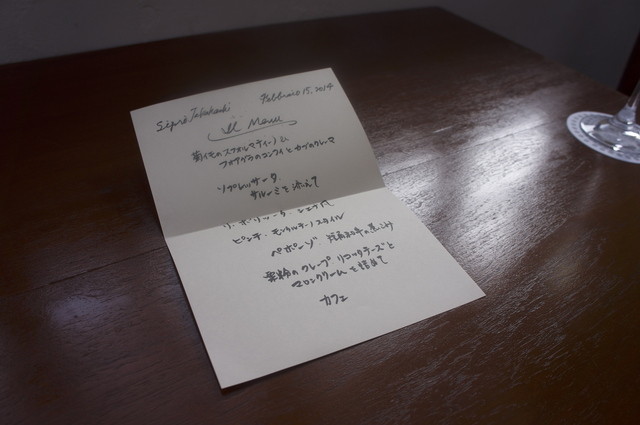 Febbraio 15, 2014
Il Menu
菊芋のスフォルマティーノに
フォアグラのコンフィとカブのクレーマ
ソプレッサータ
サルーミを添えて
ピンチ モンタルチーノスタイル
ペポーゾ の煮込み
栗粉のクレープ リコッタチーズと
マロンクリームを詰めて
カフェ